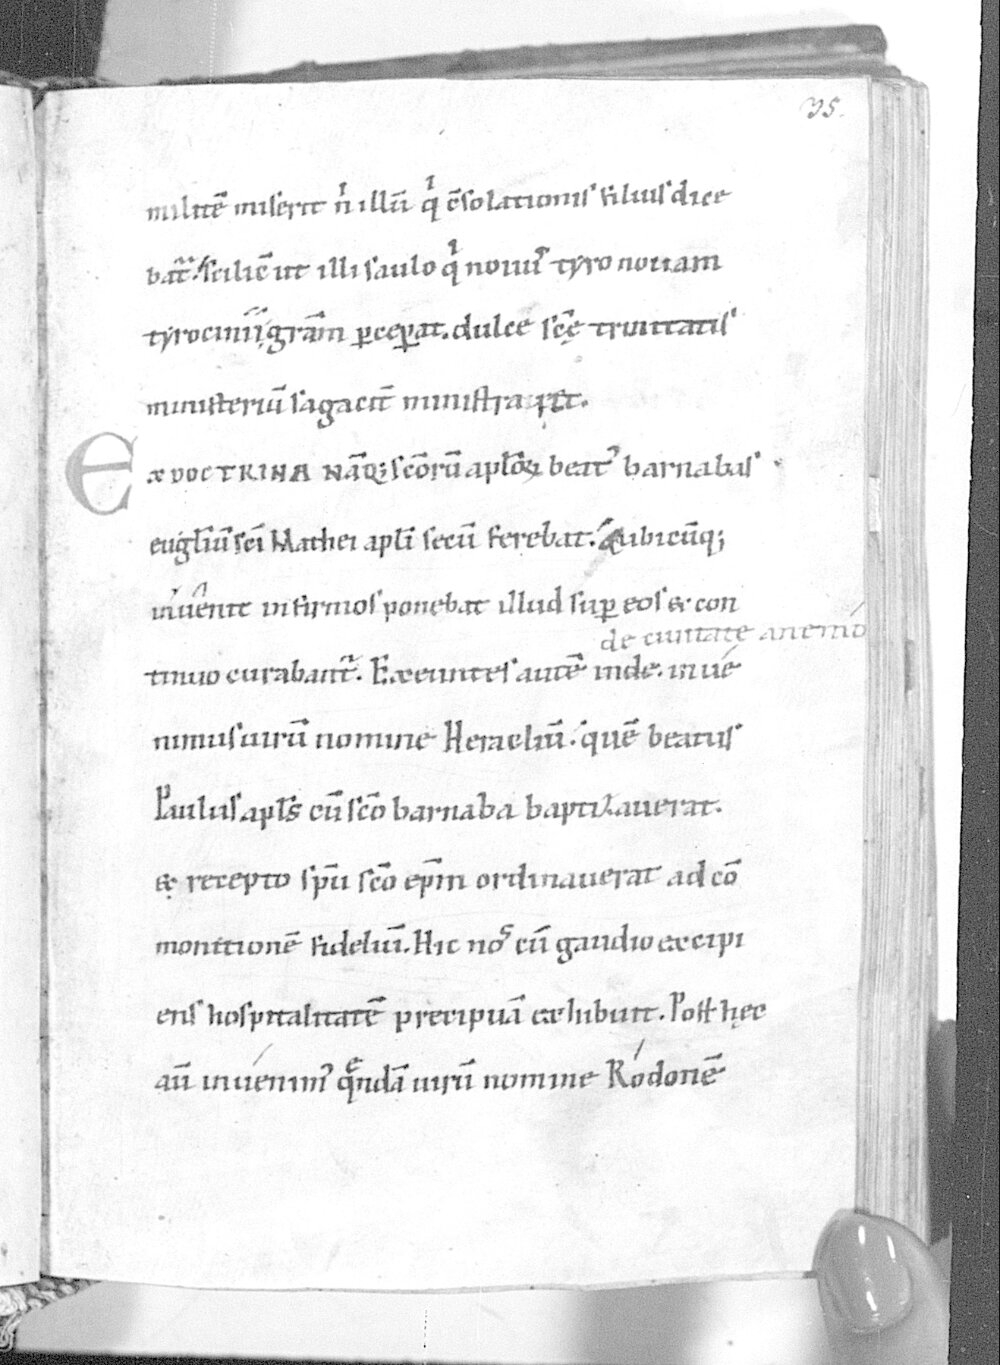 35.
militē miserit ñ illū q̇ ꝯ̄solationis filius dice
bat̃. scilic̄ ut illi saulo q̇ nouiꝰ tyro nouam
tyrocinii grām ꝑceꝑat. dulce sc̄ę trinitatis
ministeriū sagacit̄ ministraret.
Ex DOCTRINA NāQ; sc̄orū aplōꝝ beatꝰ barnabas
eug̅liū sc̄i Mathei apl̄i secū ferebat. & ubicūq;
inuenit infirmos ponebat illud suꝑ eos & con
de ciuitate anemo
tinuo curabant̃. Exeuntes autē inde. inué
nimus uirū nomine Heracliū. quē beatus
Paulus apl̄s cū sc̄o barnaba baptizauerat.
& recepto sp̄u sc̄o ep̄m ordinauerat ad cō
monitionē fidelium. Hic nos cū gaudio excipi
ens hospitalitatē precipuā exhibuit. Post hęc
aū inuenimꝰ qͤndā uirū nomine Ródonē